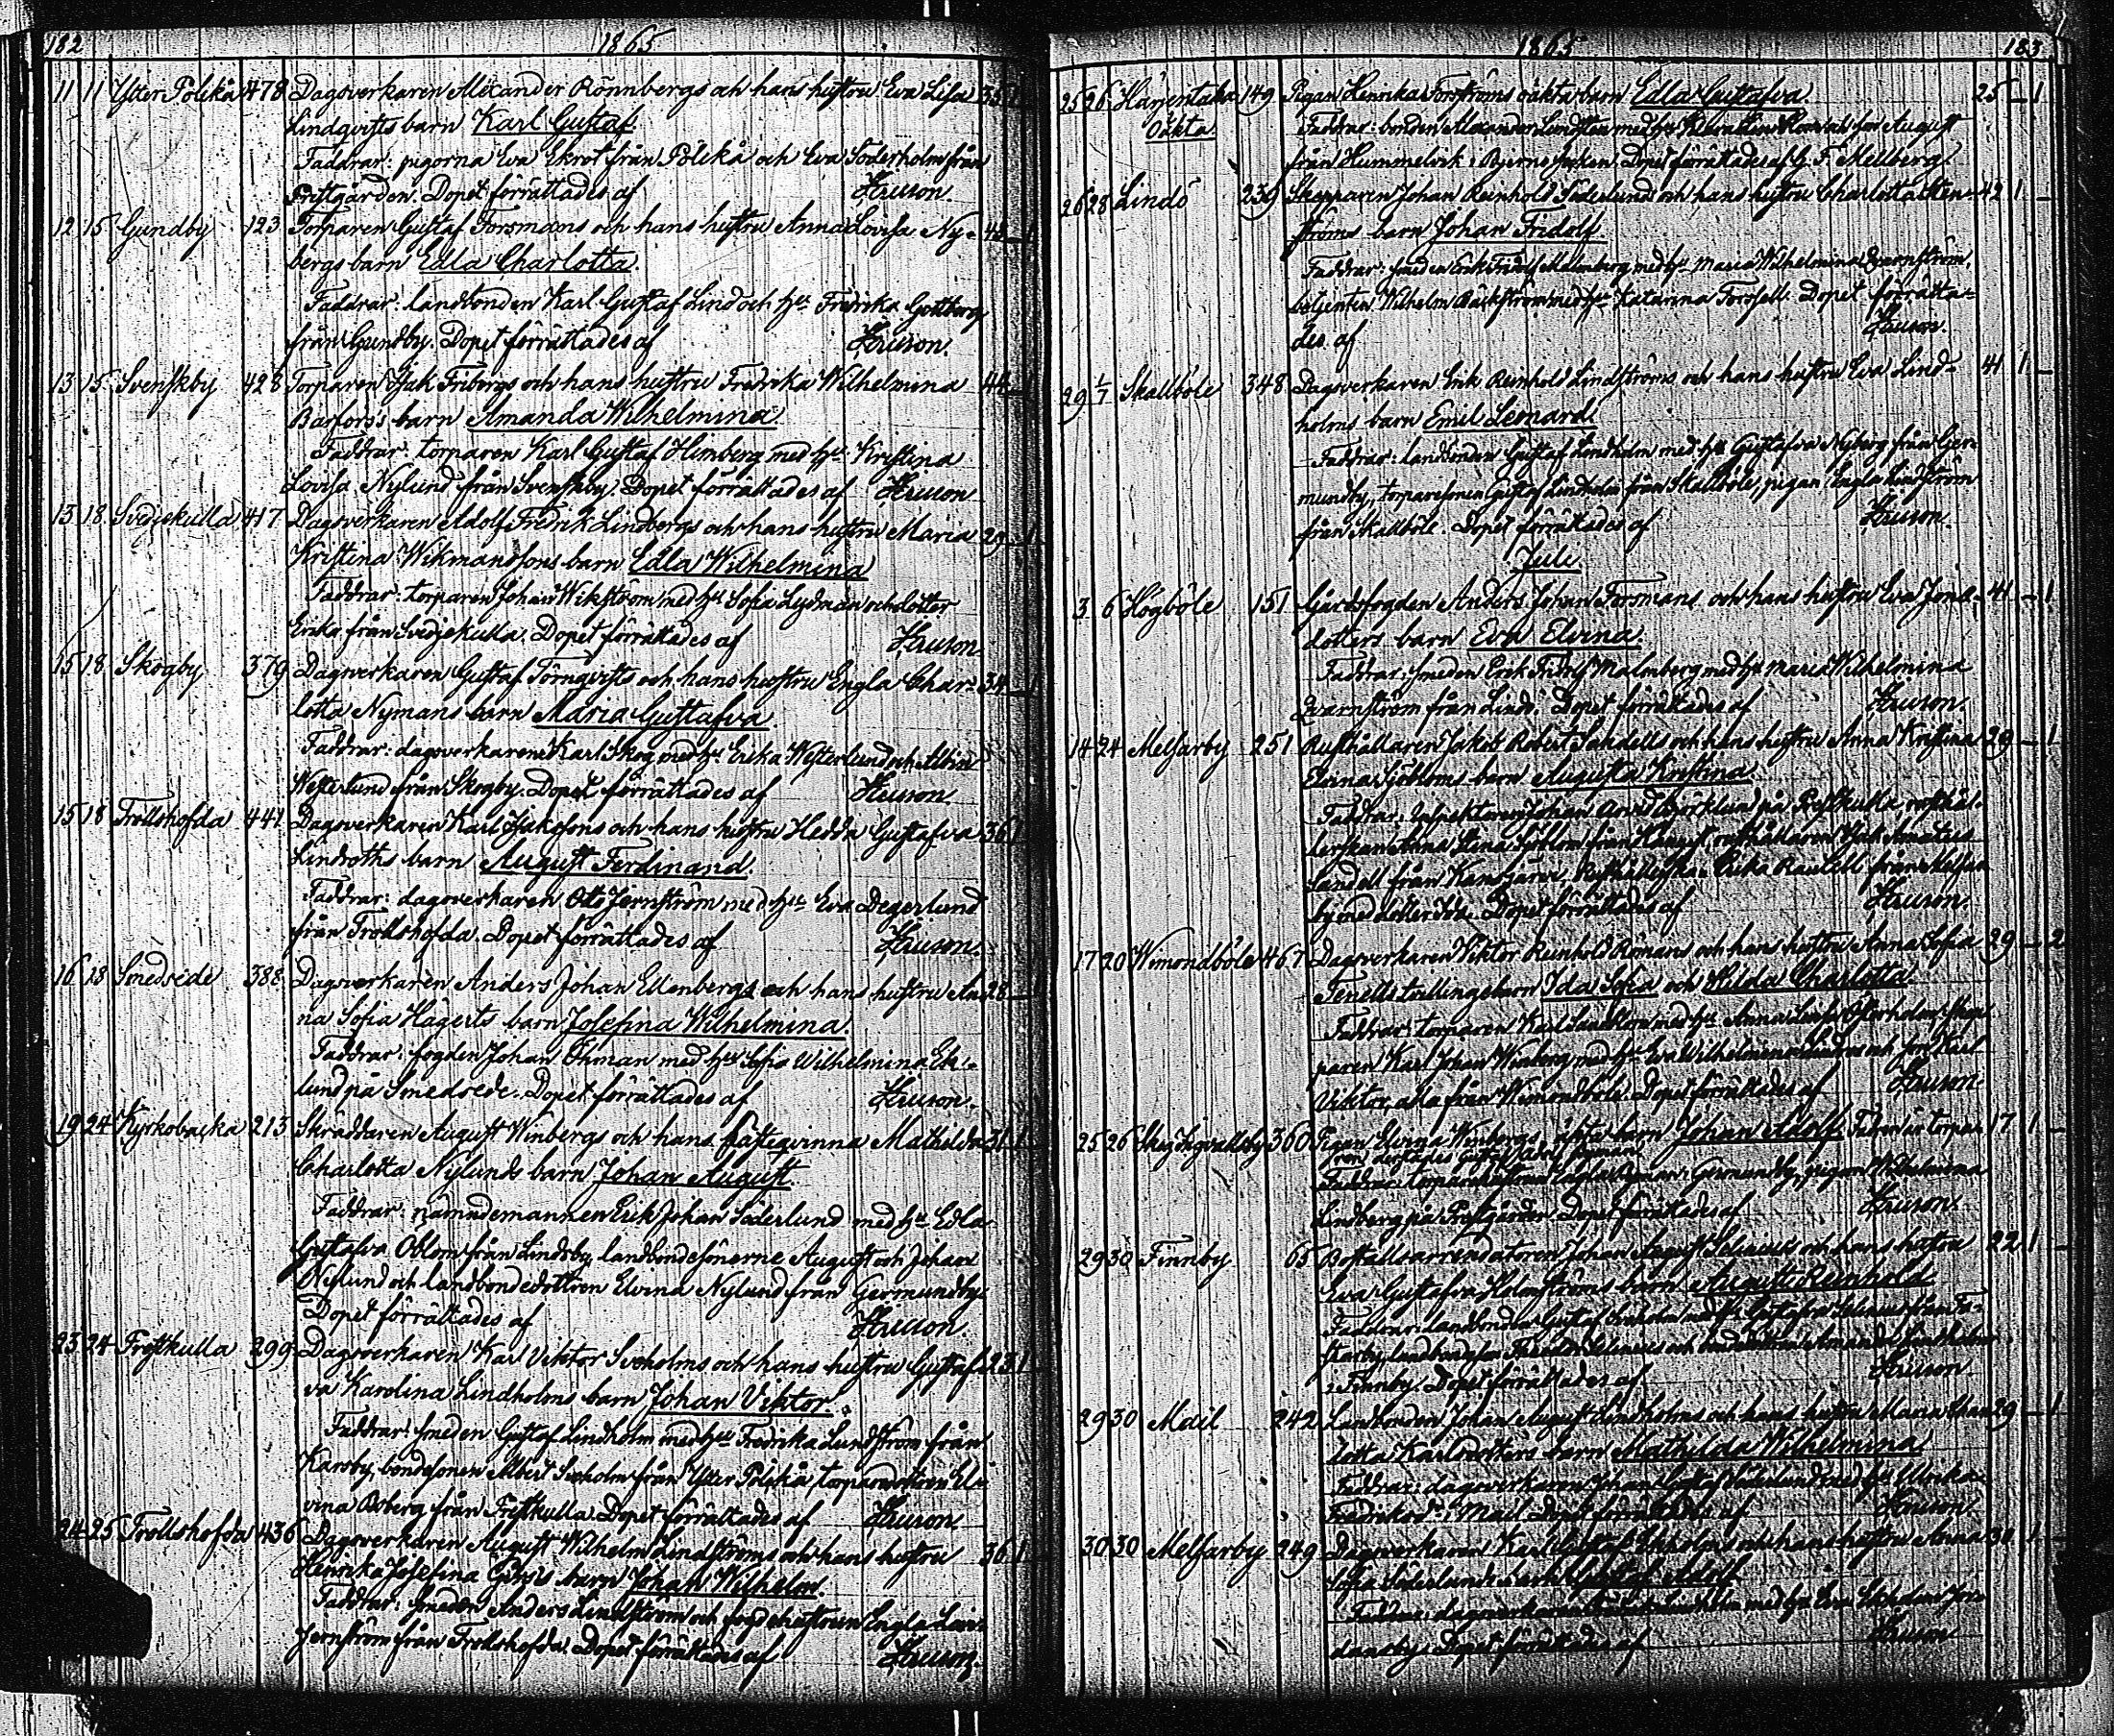 182
1865
11 11 Ytter Pölekå 478 Dagsverkaren Alexander Rönnbergs och hans hustru Eva Lisa 35 1
Lindqvists barn Karl Gustaf.
Faddrar: pigorna Eva Ekrot från Pölekå och Eva Söderholm från
Prestgården. Dopet förrättades af
12 15 Gundby 123 Torparen Gustaf Forsmans och hans hustru Anna Lovisa Ny-
bergs barn Edla Charlotta.
Faddrar: landbonden Karl Gustaf Lind och hu Fredrika Gottberg
från Gundby. Dopet förrättades af
13 15 Svenskby 428 Torparen Isak Fribergs och hans hustru Fredrika Wilhelmina 44 1
Barfors's barn Amanda Wilhelmina.
Faddrar: torparen Karl Gustaf Himberg med hu Kristina
Lovisa Nylund från Svenskby. Dopet förrättades af
13 18 Svedjekulla 417 Dagsverkaren Adolf Fredrik Lindbergs och hans hustru Maria 29 1
Kristina Wikmanssons barn Edla Wilhelmina
Faddrar: torparen Johan Wikström med hu Sofia Leydman och dotter
Erika från Svedjekulla. Dopet förrättades af
15 18 Skogby 379 Dagsverkaren Gustaf Törnqvists och hans hustru Engla Char- 34 1
lotta Nymans barn Maria Gustafva
Faddrar: dagsverkaren Karl Skog med hu Erika Westerlund och Albin
Westerlund från Skogby. Dopet förrättades af
15 18 Trollshofda 441 Dagsverkaren Karl Isaksons och hans hustru Hedda Gustafva 36 1
Lindroths barn August Ferdinand.
Faddrar: dagsverkaren Otto Jernström med hu Eva Degerlund
från Trollshofda. Dopet förrättades af
16 18 Smedsede 388 Dagsverkaren Anders Johan Ellenbergs och hans hustru An- 28 1
na Sofia Hägerts barn Josefina Wilhelmina.
Faddrar: fogden Johan Öhman med hu Sofia Wilhelmina Ek-
lund på Smedsede. Dopet förrättades af
19 24 Kyrkobacka 213 Skräddaren August Winbergs och hans fästeqvinna Mathilda 31 1
Charlotta Nylunds barn Johan August.
Faddrar: nämndemannen Erik Johan Söderlund med hu Edla
Gustafva Oblom från Lindsby, landbondesönerne August och Johan
Nylund och landbondedottren Elvina Nylund från Germundby.
Dopet förrättades af
23 24 Trettkulla 299 Dagsverkaren Karl Viktor Sveholms och hans hustru Gustaf- 23 1
va Karolina Lindholms barn Johan Viktor.
Faddrar: smeden Gustaf Lindholm med hu Fredrika Lundström från
Karsby, bondesonen Albert Sveholm från Ytter Pölekå, torparedottren El-
vina Boberg från Trettkulla. Dopet förrättades af
24 25 Trollshofda 436 Dagsverkaren August Wilhelm Lindströms och hans hustru 36 1
Henrika Josefina barn Johan Wilhelm.
Faddrar: smeden Anders Lindström och fogdehustrun Engla
Jernström från Trollshofda. Dopet förrättades af
1865
183
25 26 Harjentaka 149 Pigan Henrika Forströms oäkta barn Edla Gustafva. 25 1
Oäkta.
Faddrar: bonden Alexander Lindsten med hu August
från Hummelvik i Bjerno socken. Dopet förrättades af G. F. Mellberg.
26 28 Lindö 239 Skepparen Johan Reinhold Söderlund och hans hustru Charlotta Sten- 42 1
ströms barn Johan Fridolf.
Faddrar: smeden Erik Fridolf Malmberg med hu Maria Wilhelmina Qvarnström,
betjenten Wilhelm Bäckström med hu Katarina Forssell. Dopet förrätta-
des af
29 1/7 Skallböle 348 Dagsverkaren Erik Reinhold Lindströms och hans hustru Eva Lind- 41 1
holms barn Emil Leonard.
Faddrar: landbonden Gustaf Lindholm med hu Gustafva Nyberg från Ger-
mundby, torparesonen Gustaf Lindholm från Skallböle, pigan Engla Lindström
från Skallböle. Dopet förrättades af
Juli.
3 6 Högböle 151 Gårdsfogden Anders Johan Forsmans och hans hustru Eva Jons- 41 1
dotters barn Eva Elvina.
Faddrar: smeden Erik Fridolf Malmberg med hu Maria Wilhelmina
Qvarnström från Lindö. Dopet förrättades af
14 24 Melsarby 251 Rusthållaren Jakob Robert Sandells och hans hustru Anna Kristina 29 1
Elvina Sjöbloms barn Augusta Kristina.
Faddrar: Inspektoren Johan Arvid Björklund på Prestkulla, rusthål-
lerskan Anna Stina Sjöblom från rusthållaren Isak Amatus
Sandell från Kansjärvi, Erika från Melsar-
by med dotter Ida. Dopet förrättades af
17 20 Wimondböle 467 Dagsverkaren Viktor Reinhold Römans och hans hustru Anna Sofia 29 2
Tenells tvillingebarn Ida Sofia och Hilda Charlotta
Faddrar: torparen Karl Sandblom med hu Anna Lovisa Österholm, Skep-
paren Karl Johan Winberg med hu Eva Wilhelmina och son Karl
Viktor, alla från Wimondböle. Dopet förrättades af
25 26 360 Pigan Elvina Winbergs oäkta barn Johan Adolf. 17 1
Faddrar: torparehustrun Engla Nyman i Germundby, pigan Wilhelmina
Lindberg på Prestgården. Dopet förrättades af
29 30 Finnby 65 Boställsarrendatoren Johan August Selenius och hans hustru 22 1
Eva Gustafva Holmströms barn August Reinhold
Faddrar: landbonden Gustaf
i Finnby. Dopet förrättades af
29 30 Mail 242 Landbonden Johan August Lindholms och hans hustru Maria Char- 29 1
lotta Karlsdotters barn Mathilda Wilhelmina
Faddrar: dagsverkaren Johan Gustaf Söderlund med hu Ulrika
Fredriksd. i Mail. Dopet förrättades af
30 30 Melsarby 249 Dagsverkaren Karl Gustaf Ekholms och hans hustru Anna 31 1
Sofia Söderlunds barn Gustaf Adolf
Faddrar: dagsverkaren med hu Eva
dansby. Dopet förrättades af